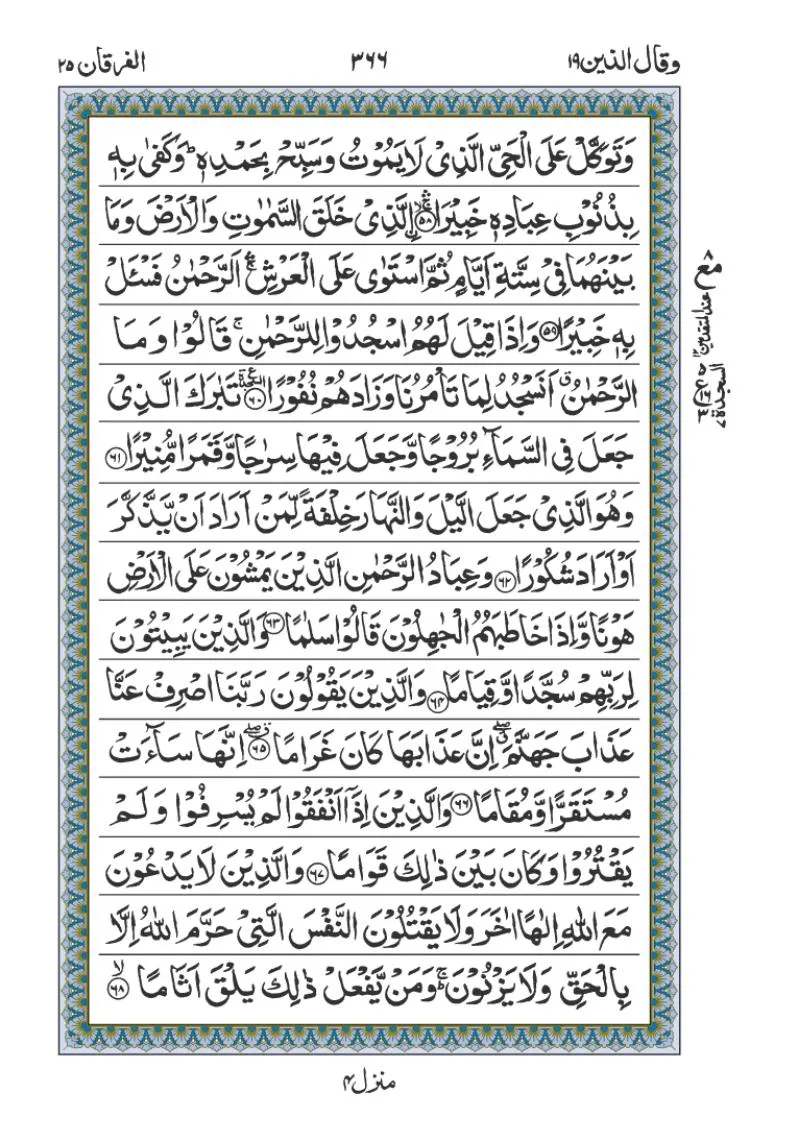 وقال الذين ١٩ ٣٦٦ الفرقان ٢٥
وَتَوَكَّلْ عَلَى الْحَيِّ الَّذِىْ لَا يَمُوْتُ وَسَبِّحْ بِحَمْدِهٖ ؕ وَكَفٰى بِهٖ
بِذُنُوْبِ عِبَادِهٖ خَبِيْرًا ۛۚ ۙ﴿۵۸﴾ اِلَّذِىْ خَلَقَ السَّمٰوٰتِ وَالْاَرْضَ وَمَا
بَيْنَهُمَا فِىْ سِتَّةِ اَيَّامٍ ثُمَّ اسْتَوٰى عَلَى الْعَرْشِ ۛۚ اَلرَّحْمٰنُ فَسْئَلْ
بِهٖ خَبِيْرًا ﴿۵۹﴾ وَاِذَا قِيْلَ لَهُمُ اسْجُدُوْا لِلرَّحْمٰنِ ۚ قَالُوْا وَمَا
الرَّحْمٰنُ ۗ اَنَسْجُدُ لِمَا تَاْمُرُنَا وَزَادَهُمْ نُفُوْرًا ۩ ﴿۶۰﴾ تَبٰرَكَ الَّذِىْ
جَعَلَ فِى السَّمَآءِ بُرُوْجًا وَّجَعَلَ فِيْهَا سِرٰجًا وَّقَمَرًا مُّنِيْرًا ﴿۶۱﴾
وَهُوَ الَّذِىْ جَعَلَ الَّيْلَ وَالنَّهَارَ خِلْفَةً لِّمَنْ اَرَادَ اَنْ يَّذَّكَّرَ
اَوْ اَرَادَ شُكُوْرًا ﴿۶۲﴾ وَعِبَادُ الرَّحْمٰنِ الَّذِيْنَ يَمْشُوْنَ عَلَى الْاَرْضِ
هَوْنًا وَّاِذَا خَاطَبَهُمُ الْجٰهِلُوْنَ قَالُوْا سَلٰمًا ﴿۶۳﴾ وَالَّذِيْنَ يَبِيْتُوْنَ
لِرَبِّهِمْ سُجَّدًا وَّقِيَامًا ﴿۶۴﴾ وَالَّذِيْنَ يَقُوْلُوْنَ رَبَّنَا اصْرِفْ عَنَّا
عَذَابَ جَهَنَّمَ ۖ اِنَّ عَذَابَهَا كَانَ غَرَامًا ۖ ﴿۶۵﴾ اِنَّهَا سَآءَتْ
مُسْتَقَرًّا وَّمُقَامًا ﴿۶۶﴾ وَالَّذِيْنَ اِذَاۤ اَنْفَقُوْا لَمْ يُسْرِفُوْا وَلَمْ
يَقْتُرُوْا وَكَانَ بَيْنَ ذٰلِكَ قَوَامًا ﴿۶۷﴾ وَالَّذِيْنَ لَا يَدْعُوْنَ
مَعَ اللّٰهِ اِلٰهًا اٰخَرَ وَلَا يَقْتُلُوْنَ النَّفْسَ الَّتِىْ حَرَّمَ اللّٰهُ اِلَّا
بِالْحَقِّ وَلَا يَزْنُوْنَ ۚ وَمَنْ يَّفْعَلْ ذٰلِكَ يَلْقَ اَثَامًا ۙ﴿۶۸﴾
مع ٨
عند المتقدمين ١٢
السجدة ٧
منزل ۴